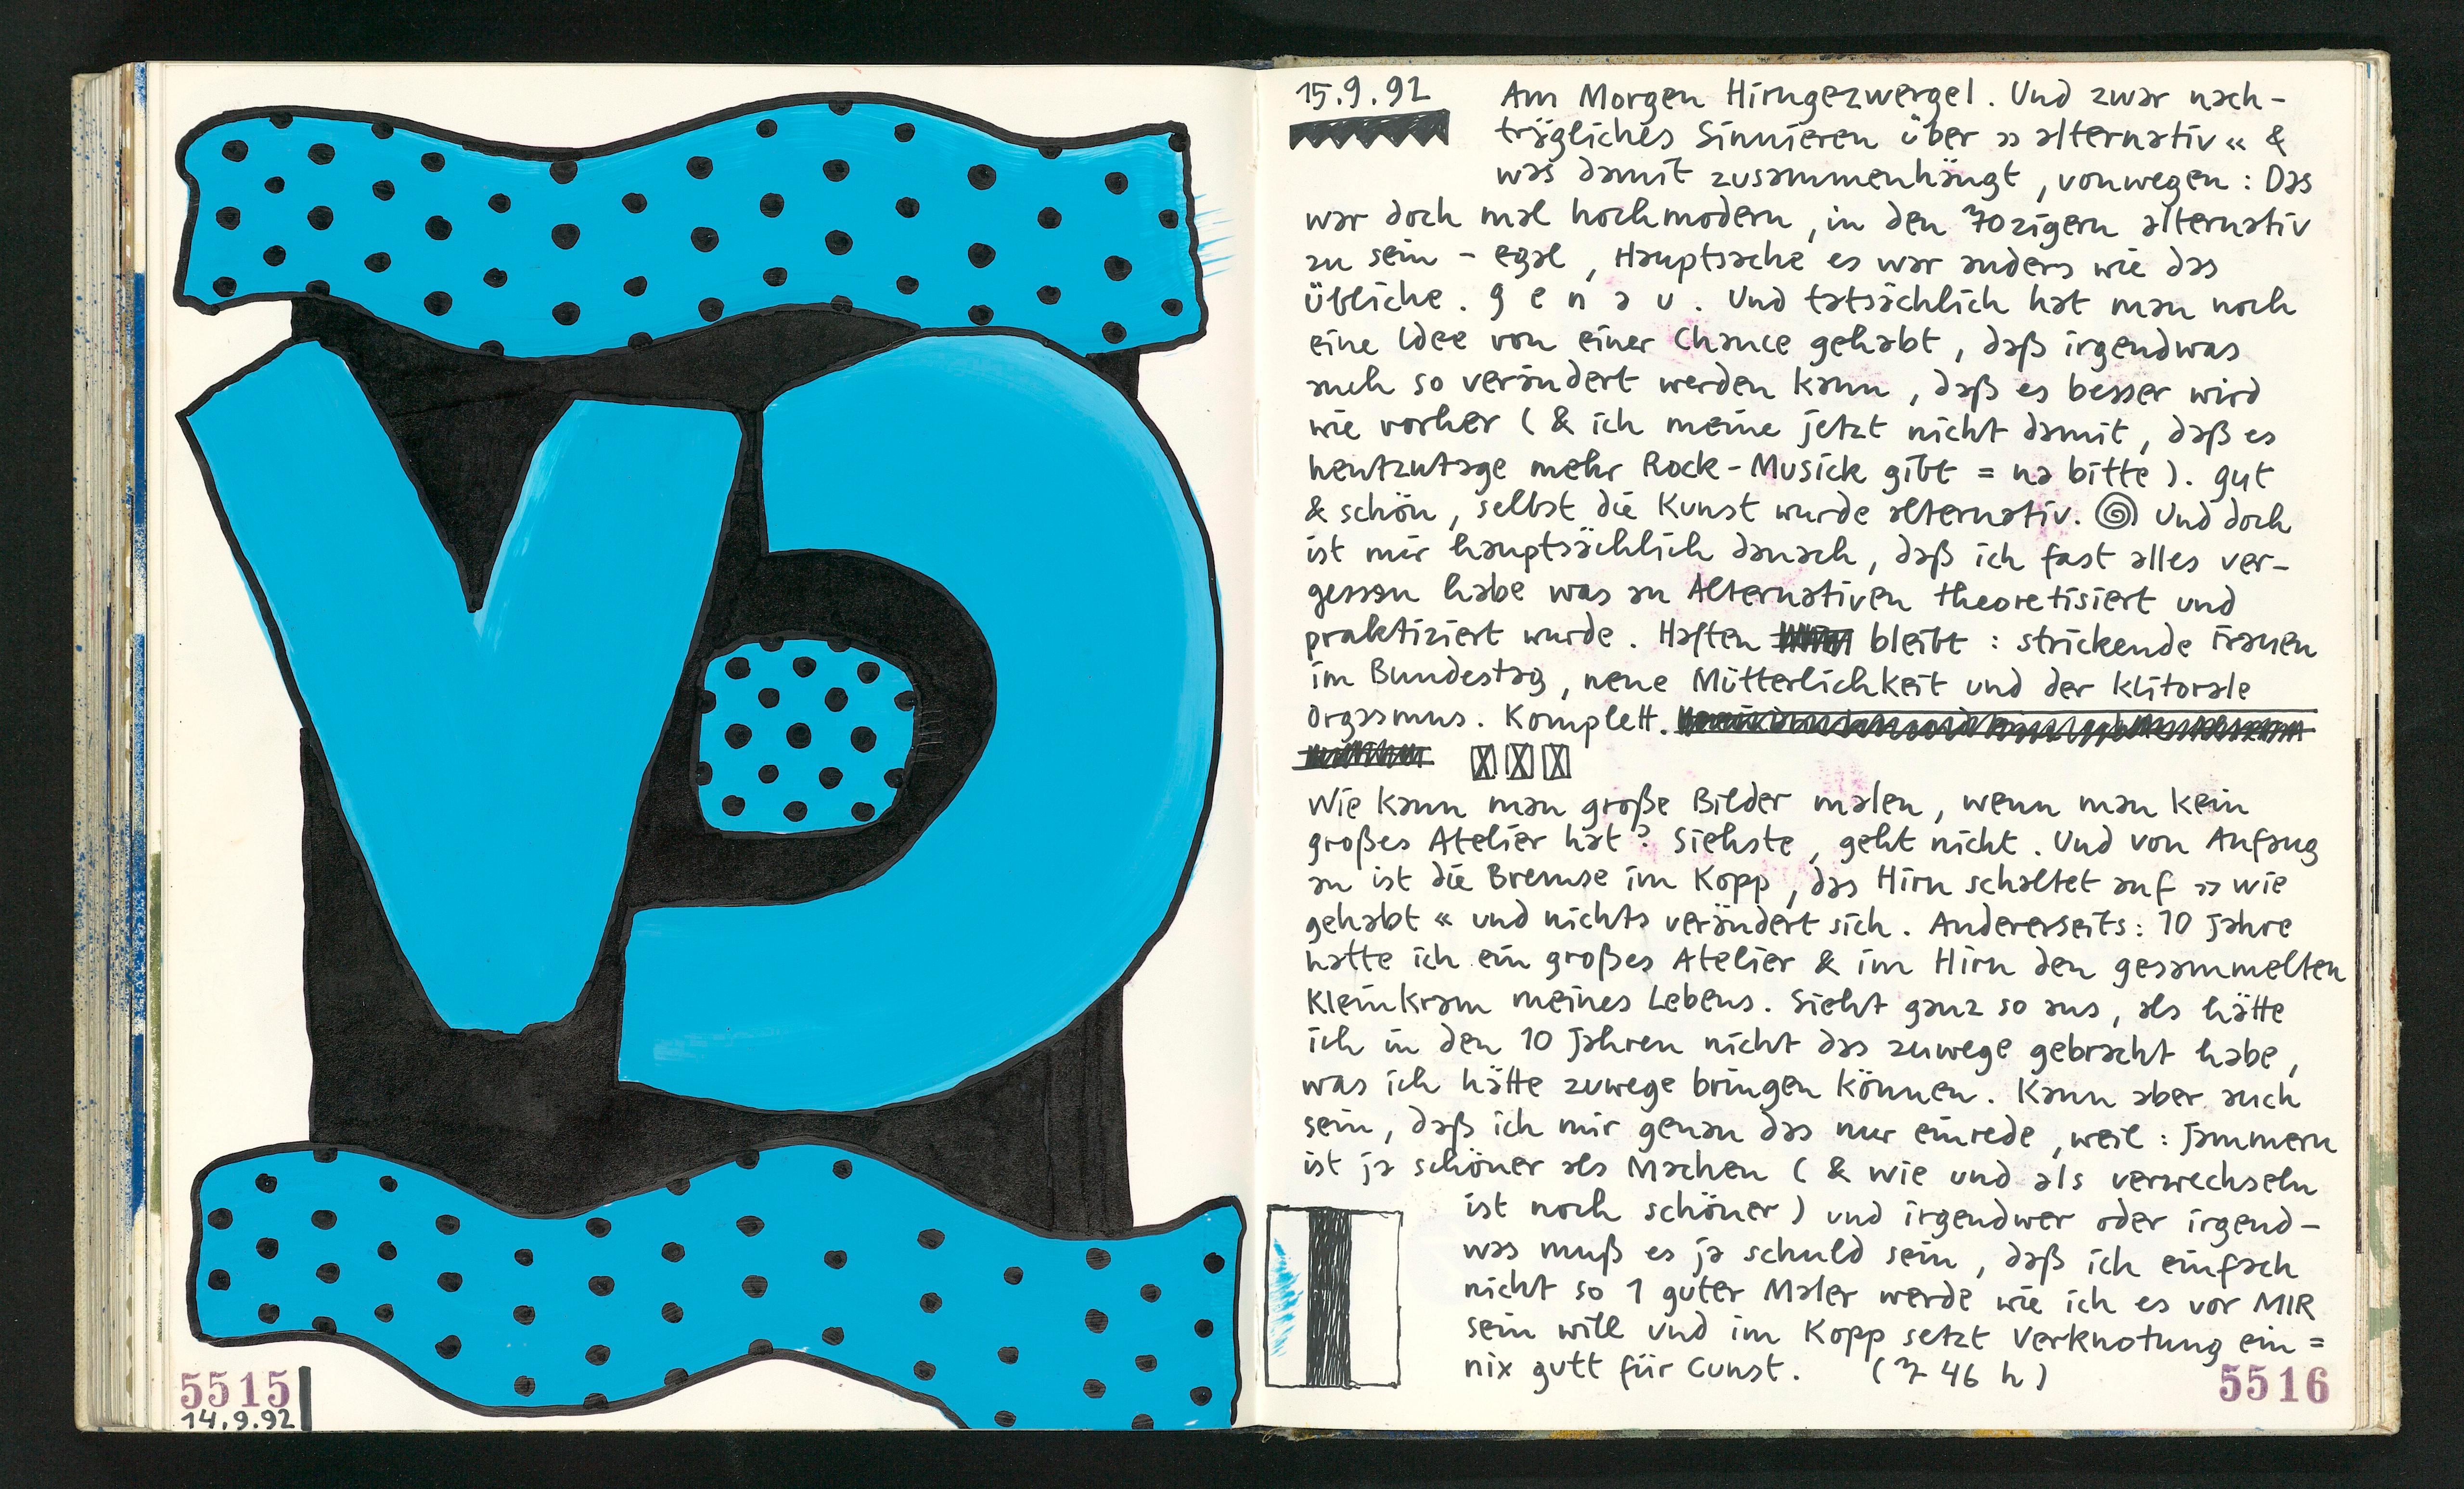 5515
14.9.92
15.9.92
Am Morgen Hirngezwergel. Und zwar nach-
trägliches Sinnieren über » alternativ « &
was damit zusammenhängt, vonwegen: Das
war doch mal hochmodern, in den 70zigern alternativ
zu sein - egal, Hauptsache es war anders wie das
Übliche. g e n a u. Und tatsächlich hat man noch
eine Idee von einer Chance gehabt, daß irgendwas
auch so verändert werden kann, daß es besser wird
wie vorher (& ich meine jetzt nicht damit, daß es
heutzutage mehr Rock-Musick gibt = na bitte). gut
& schön, selbst die Kunst wurde alternativ. Und doch
ist mir hauptsächlich danach, daß ich fast alles ver-
gessen habe was an Alternativen theoretisiert und
praktiziert wurde. Haften bleibt: strickende Frauen
im Bundestag, neue Mütterlichkeit und der klitorale
Orgasmus. Komplett.
Wie kann man große Bilder malen, wenn man kein
großes Atelier hat? Siehste, geht nicht. Und von Anfang
an ist die Bremse im Kopp, das Hirn schaltet auf » wie
gehabt « und nichts verändert sich. Andererseits: 10 Jahre
hatte ich ein großes Atelier & im Hirn den gesammelten
Kleinkram meines Lebens. Sieht ganz so aus, als hätte
ich in den 10 Jahren nicht das zuwege gebracht habe,
was ich hätte zuwege bringen können. Kann aber auch
sein, daß ich mir genau das nur einrede, weil: Jammern
ist ja schöner als Machen (& wie und als verwechseln
ist noch schöner) und irgendwer oder irgend-
was muß es ja schuld sein, daß ich einfach
nicht so 1 guter Maler werde wie ich es vor MIR
sein will und im Kopp setzt Verknotung ein =
nix gutt für Cunst. (7 46 h)
5516